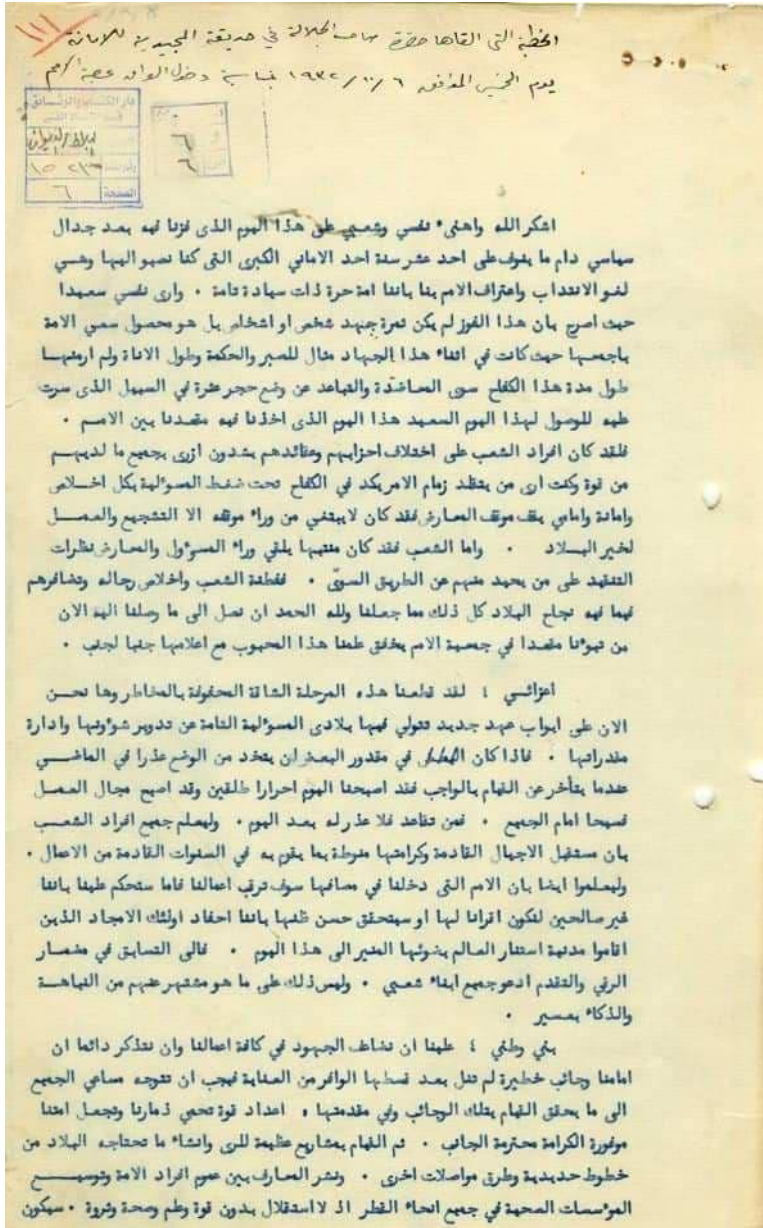 الخطبة التي القاها حضرة صاحب الجلالة في حديقة المجيدية للامانة
يوم الخميس الموافق ٦ /١٠/ ١٩٣٢ بمناسبة دخول العراق عصبة الامم
دار الكتب والوثائق
البلاط الملكي
الصفحة ٦
٦
٦
اشكر الله واهنىء نفسي وشعبي على هذا اليوم الذى فزنا فيه بعد جدال
سياسي دام ما ينوف على احد عشر سنة احد الاماني الكبرى التي كنا نصبو اليها وهـي
لغو الانتداب واعتراف الامم بنا باننا امة حرة ذات سيادة تامة ٠ وارى نفسي سعيدا
حيث اصرح بان هذا الفوز لم يكن ثمرة جهد شخص او اشخاص بل هو محصول سعي الامة
باجمعها حيث كانت في اثناء هذا الجهاد مثال للصبر والحكمة وطول الاناة ولم ارمنهـا
طول مدة هذا الكفاح سوى المعاضدة والتباعد عن وضع حجر عثرة في السبيل الذى سرت
عليه للوصول لهذا اليوم السعيد هذا اليوم الذى اخذنا فيه مقعدنا بين الامم ٠
فلقد كان افراد الشعب على اختلاف احزابهم وعقائدهم يشدون ازرى بجميع ما لديهـم
من قوة وكنت ارى من يتقلد زمام الامر يكد في الكفاح تحت ضغط المسؤلية بكل اخـلاص
وامانة وامامي يقف موقف المعارض فقد كان لا يبتغي من وراء موقفه الا التشجيع والعمـل
لخير البـلاد ٠ واما الشعب فقد كان منتبها يلقي وراء المسؤول والمعارض نظرات
التنقيد على من يحيد منهم عن الطريق السوىّ ٠ ففطنة الشعب واخلاص رجاله وتضافرهم
فيما فيه نجاح البلاد كل ذلك مما جعلنا ولله الحمد ان نصل الى ما وصلنا اليه الان
من تبوئنا مقعدا في جمعية الامم يخفق علمنا هذا المحبوب مع اعلامها جنبا لجنب ٠
اعزائـي ؛ لقد قطعنا هذه المرحلة الشاقة المحفوفة بالمخاطر وها نحـن
الان على ابواب عهد جديد تتولى فيها بلادى المسؤلية التامة عن تدوير شؤونها وادارة
مقدراتها ٠ فاذا كان في مقدور البعض ان يتخذ من الوضع عذرا في الماضـي
عندما يتأخر عن القيام بالواجب فقد اصبحنا اليوم احرارا طلقين وقد اصبح مجال العمـل
فسيحا امام الجميع ٠ فمن تقاعد فلا عذر له بعد اليوم ٠ وليعلم جميع افراد الشعـب
بان مستقبل الاجيال القادمة وكرامتها منوطة بما يقوم به في السنوات القادمة من الاعمال ٠
وليعلموا ايضا بان الامم التي دخلنا في مصافها سوف ترقب اعمالنا فاما ستحكم علينا باننا
غير صالحين لنكون اقرانا لها او سيتحقق حسن ظنها باننا احفاد اولئك الامجاد الذين
اقاموا مدنية استنار العالم بضوئها المنير الى هذا اليوم ٠ فالى التسابق في مضمـار
الرقي والتقدم ادعو جميع ابناء شعبي ٠ وليس ذلك على ما هو مشتهر عنهم من النباهـة
والذكاء بعسير ٠
بني وطني ؛ علينا ان نضاعف الجهود في كافة اعمالنا وان نتذكر دائما ان
امامنا وجائب خطيرة لم تنل بعد قسطها الوافر من العناية فيجب ان تتوجه مساعي الجميع
الى ما يحقق القيام بتلك الوجائب وفي مقدمتها ، اعداد قوة تحمي ذمارنا وتجعل امتنا
موفورة الكرامة محترمة الجانب ٠ ثم القيام بمشاريع عظيمة للرى وانشاء ما تحتاجه البلاد من
خطوط حديدية وطرق مواصلات اخرى ٠ ونشر المعارف بين عموم افراد الامة وتوسيـع
المؤسسات الصحية في جميع انحاء القطر اذ لا استقلال بدون قوة وعلم وصحة وثروة ٠ سيكون